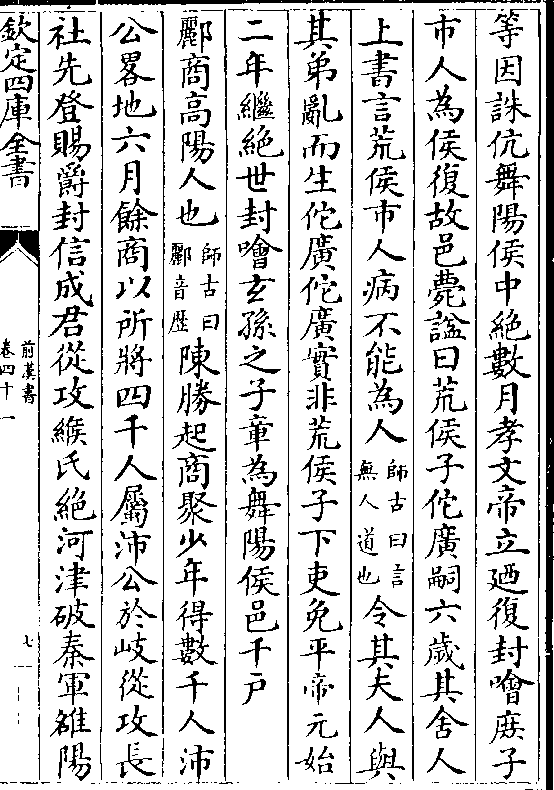 等因誅伉舞陽侯中絶數月孝文帝立廼復封噲庶子
市人為侯復故邑薨諡曰荒侯子佗廣嗣六歲其舍人
上書言荒侯市人病不能為人師古曰言無人道也令其夫人與
其弟亂而生佗廣佗廣實非荒侯子下吏免平帝元始
二年繼絶世封噲玄孫之子章為舞陽侯邑千戸
酈商高陽人也師古曰酈音歴陳勝起商聚少年得數千人沛
公畧地六月餘商以所將四千人屬沛公於岐從攻長
社先登賜爵封信成君從攻緱氏絶河津破秦軍雒陽
欽定四庫全書
前漢書
卷四十一
七